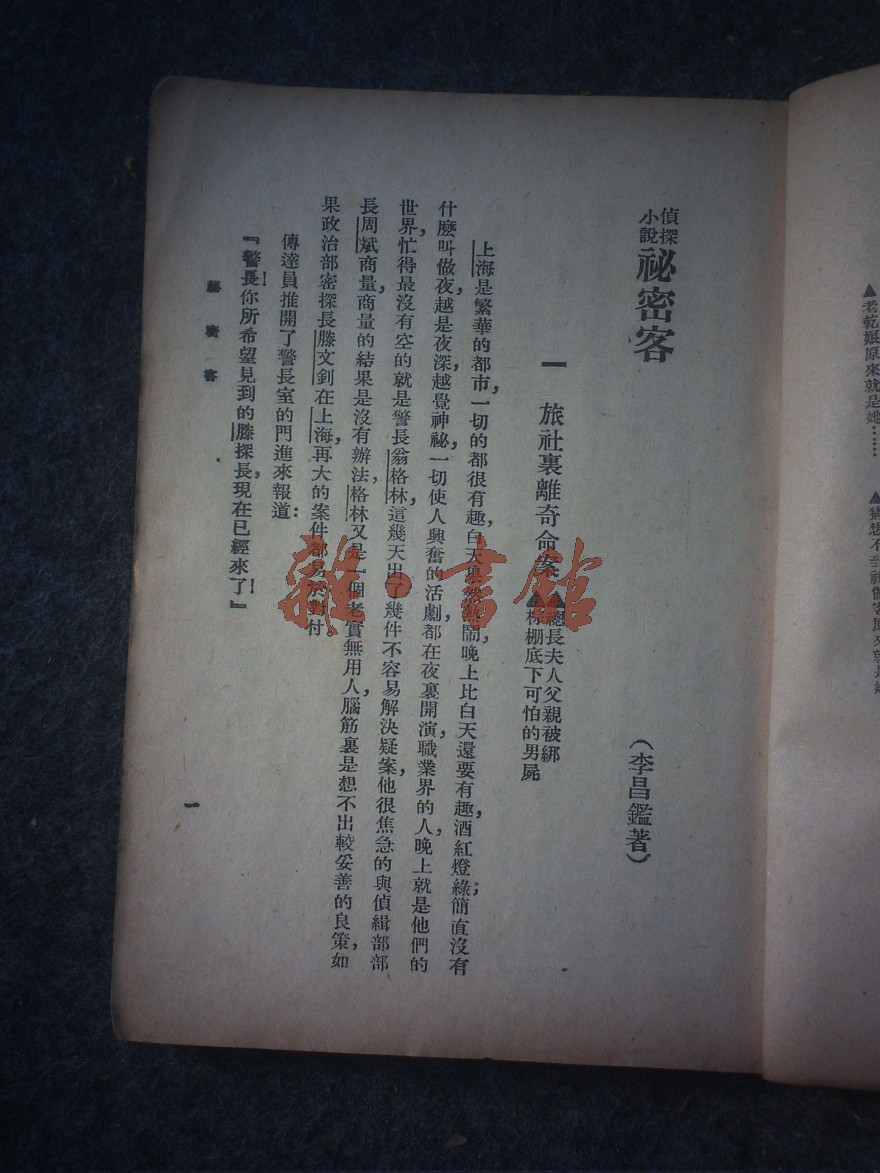 ▲老乾娘原來就是她……
偵探
小說
祕密客
(李昌鑑著)
一 旅社裏離奇命案
▲總長夫人父親被綁
▲棕棚底下可怕的男屍
上海是繁華的都市，一切的都很有趣，白天果然熱鬧，晚上比白天還要有趣，酒紅燈綠簡直沒有
什麼叫做夜，越是夜深，越覺神祕，一切使人興奮的活劇，都在夜裏開演，職業界的人，晚上就是他們的
世界，忙得最沒有空的就是警長翁格林，這幾天出了幾件不容易解決疑案，他很焦急的與偵緝部部
長周斌商量，商量的結果是沒有辦法，格林又是一個老實無用人，腦筋裏是想不出較妥善的良策，如
果政治部密探長滕文釗在上海，再大的案件都易於對付。
傳達員推開了警長室的門進來報道：
『警長！你所希望見到的滕探長，現在已經來了！』
祕密客
一
雜·書館